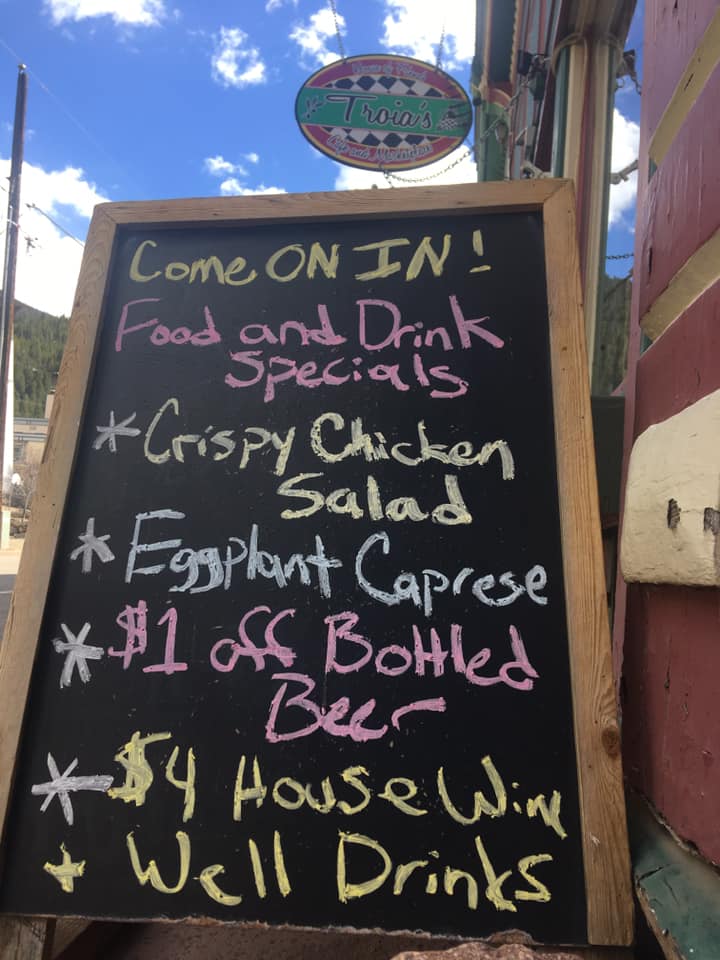 Troia's
Cafe and Marketplace
Come ON IN!
Food and Drink
Specials
* Crispy Chicken
Salad
* Eggplant Caprese
* $1 off Bottled
Beer
* $4 House Wine
+ Well Drinks